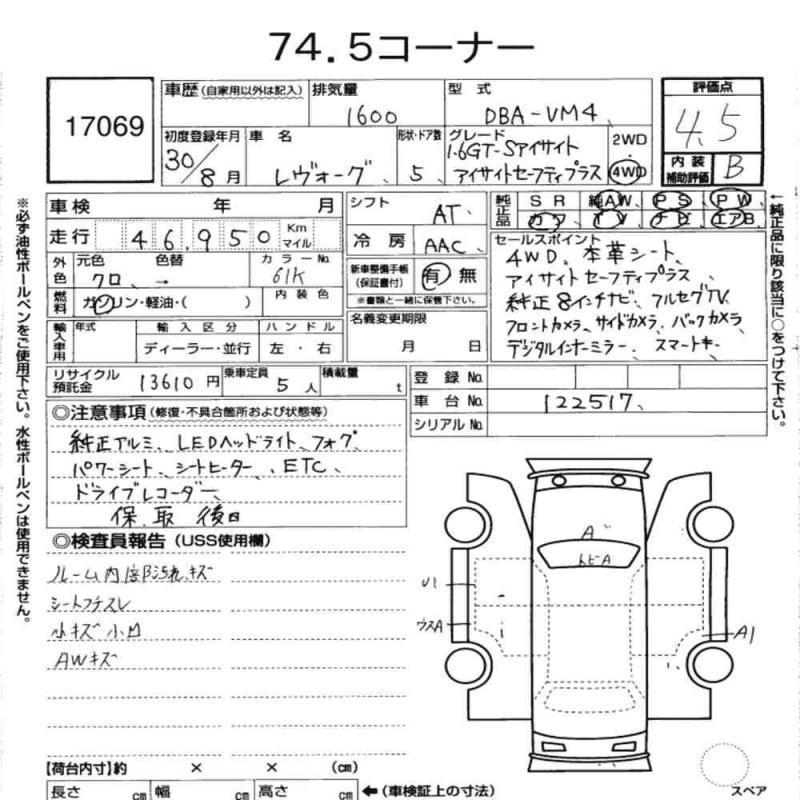 74.5コーナー
17069
車歴 (自家用以外は記入)
排気量
1600
型式
DBA-VM4
評価点
4.5
初度登録年月
30/8月
車名
レヴォーグ
形状・ドア数
5
グレード
1.6GT-Sアイサイト
アイサイトセーフティプラス
2WD
4WD
内装
補助評価
B
車検 年 月
シフト
AT
純正品
SR 純AW PS PW
カワ TV ナビ エアB
走行 46,950 Km
マイル
冷房
AAC
セールスポイント
4WD、本革シート、
アイサイトセーフティプラス、
純正8インチナビ、フルセグTV、
フロントカメラ、サイドカメラ、バックカメラ
デジタルインナーミラー、スマートキー
外色
元色
クロ
色替
→
カラーNo
61K
新車整備手帳
(保証書付)
有 無
※書類と一緒に保管下さい。
燃料
ガソリン・軽油・( )
内装色
名義変更期限
月 日
輸入車用
年式
輸入区分
ハンドル
ディーラー・並行
左・右
リサイクル
預託金
13610円
乗車定員
5人
積載量
t
登録No.
車台No.
122517
シリアルNo.
◎注意事項 (修復・不具合箇所および状態等)
純正アルミ、LEDヘッドライト、フォグ
パワーシート、シートヒーター、ETC、
ドライブレコーダー、
保、取 後日
◎検査員報告 (USS使用欄)
ルーム内 内部汚れ、キズ
シートフチスレ
小キズ 小凹
AWキズ
A
トビA
U1
ウスA
A1
【荷台内寸】約 × × (cm)
長さ cm 幅 cm 高さ cm
←(車検証上の寸法)
スペア
※必ず油性ボールペンをご使用下さい。水性ボールペンは使用できません。
←純正品に限り該当に○をつけて下さい。